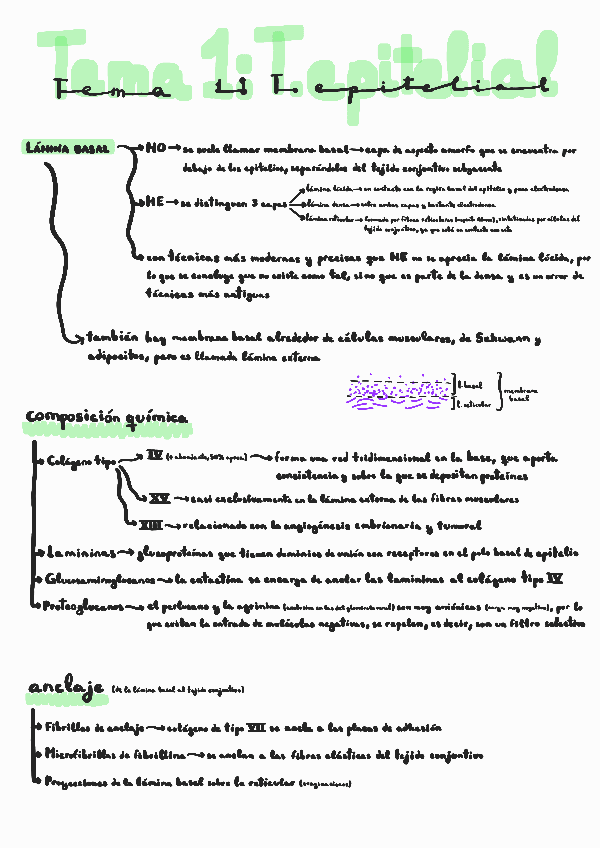 Tema 1: T. epitelial
LÁMINA BASAL → MO → se suele llamar membrana basal → capa de aspecto amorfo que se encuentra por
debajo de los epitelios, separándolos del tejido conjuntivo subyacente
ME → se distinguen 3 capas
lámina lúcida → en contacto con la región basal del epitelio y poco electrodensa
lámina densa → entre ambas capas y bastante electrodensa
lámina reticular → formada por fibras reticulares
tejido conjuntivo, ya que está en contacto con este
con técnicas más modernas y precisas que ME no se aprecia la lámina lúcida, por
lo que se concluye que no existe como tal, si no que es parte de la densa y es un error de
técnicas más antiguas
también hay membrana basal alrededor de células musculares, de Schwann y
adipocitos, pero es llamada lámina externa
l. basal
l. reticular
membrana
basal
composición química
Colágeno tipo
IV (+ abundante, 50% aprox.) → forma una red tridimensional en la base, que aporta
consistencia y sobre la que se depositan proteínas
XV → casi exclusivamente en la lámina externa de las fibras musculares
XVIII → relacionado con la angiogénesis embrionaria y tumoral
Lamininas → glucoproteínas que tienen dominios de unión con receptores en el polo basal de epitelio
Glucosaminoglucanos → la entactina se encarga de anclar las lamininas al colágeno tipo IV
Proteoglucanos → el perlecano y la agrina son muy aniónicas (carga muy negativa), por lo
que evitan la entrada de moléculas negativas, se repelen, es decir, son un filtro selectivo
anclaje (de la lámina basal al tejido conjuntivo)
Fibrillas de anclaje → colágeno de tipo VII se ancla a las placas de adhesión
Microfibrillas de fibrillina → se anclan a las fibras elásticas del tejido conjuntivo
Proyecciones de la lámina basal sobre la reticular